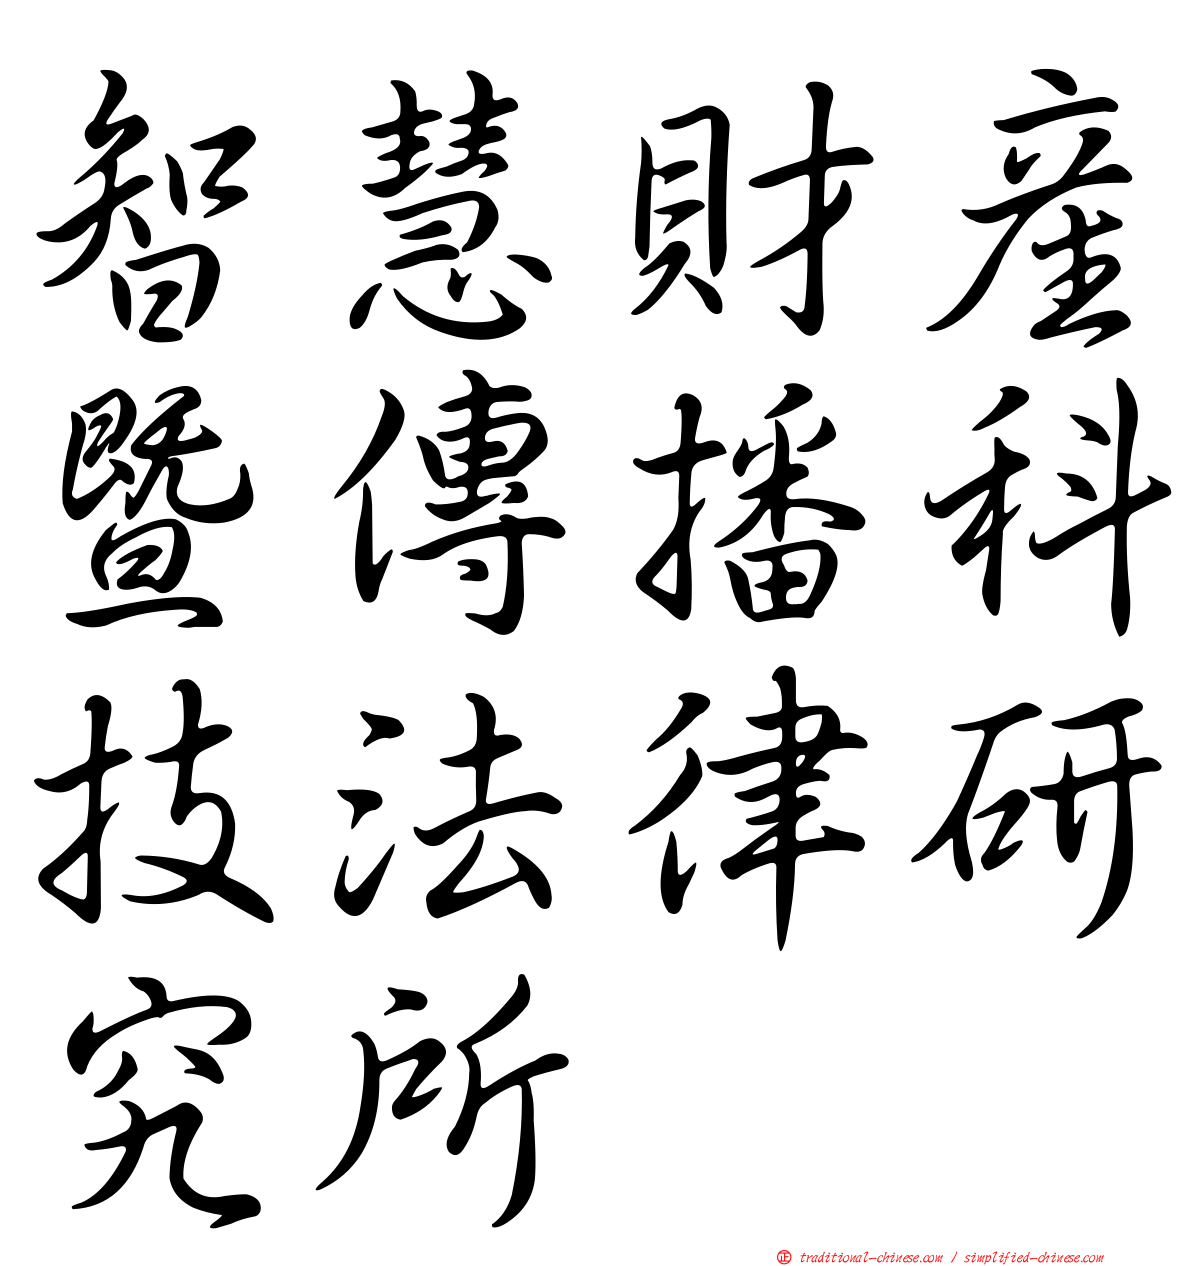 智慧財產
暨傳播科
技法律研
究所
㊣ traditional-chinese.com / simplified-chinese.com